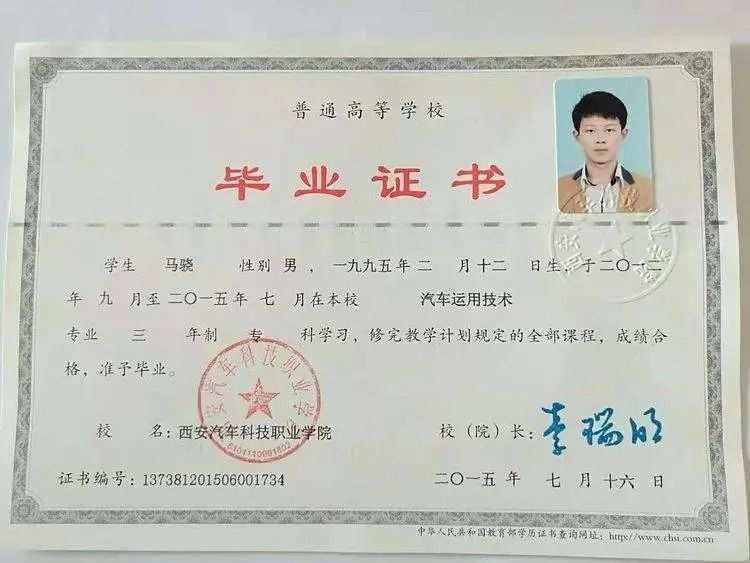 普通高等学校
毕业证书
学生 马骁 性别 男，一九九五年 二 月十二 日生，于二〇一二
年 九 月至二〇一五年 七 月在本校 汽车运用技术
专业 三 年制 专 科学习，修完教学计划规定的全部课程，成绩合
格，准予毕业。
西安汽车科技职业学院
6101110001802
校 名：西安汽车科技职业学院 校（院）长：李瑞明
证书编号：137381201506001734 二〇一五年 七 月 十六 日
中华人民共和国教育部学历证书查询网址：http://www.chsi.com.cn